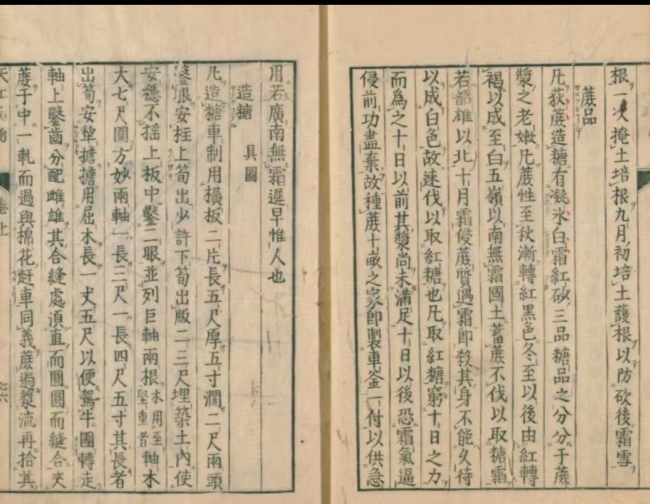 根一次掩土培根九月初培土護根以防砍後霜雪
蔗品
凡荻蔗造糖有凝氷白霜紅砂三品糖品之分分于蔗
漿之老嫩凡蔗性至秋漸轉紅黑色冬至以後由紅轉
褐以成至白五嶺以南無霜國土蓄蔗不伐以取糖霜
若韶雄以北十月霜侵蔗質遇霜即殺其身不能久待
以成白色故速伐以取紅糖也凡取紅糖窮十日之力
而爲之十日以前其漿尚未滿足十日以後恐霜氣逼
侵前功盡棄故種蔗十畝之家即製車釜一付以供急
用若廣南無霜遲早惟人也
造糖 具圖
凡造糖車制用橫板二片長五尺厚五寸濶二尺兩頭
鑿眼安柱上筍出少許下筍出版二三尺埋築土內使
安穩不搖上板中鑿二眼並列巨軸兩根木用至堅重者軸木
大七尺圍方妙兩軸一長三尺一長四尺五寸其長者
出筍安犂擔擔用屈木長一丈五尺以便駕牛團轉走
軸上鑿齒分配雌雄其合縫處須直而圓圓而縫合夾
蔗于中一軋而過與棉花赶車同義蔗過漿流再拾其
卷上